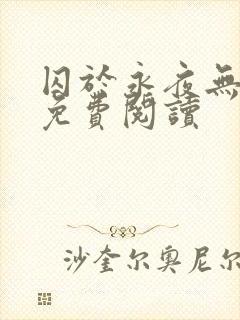 囚於永夜無
免費閱讀
沙奎尔奥尼尔